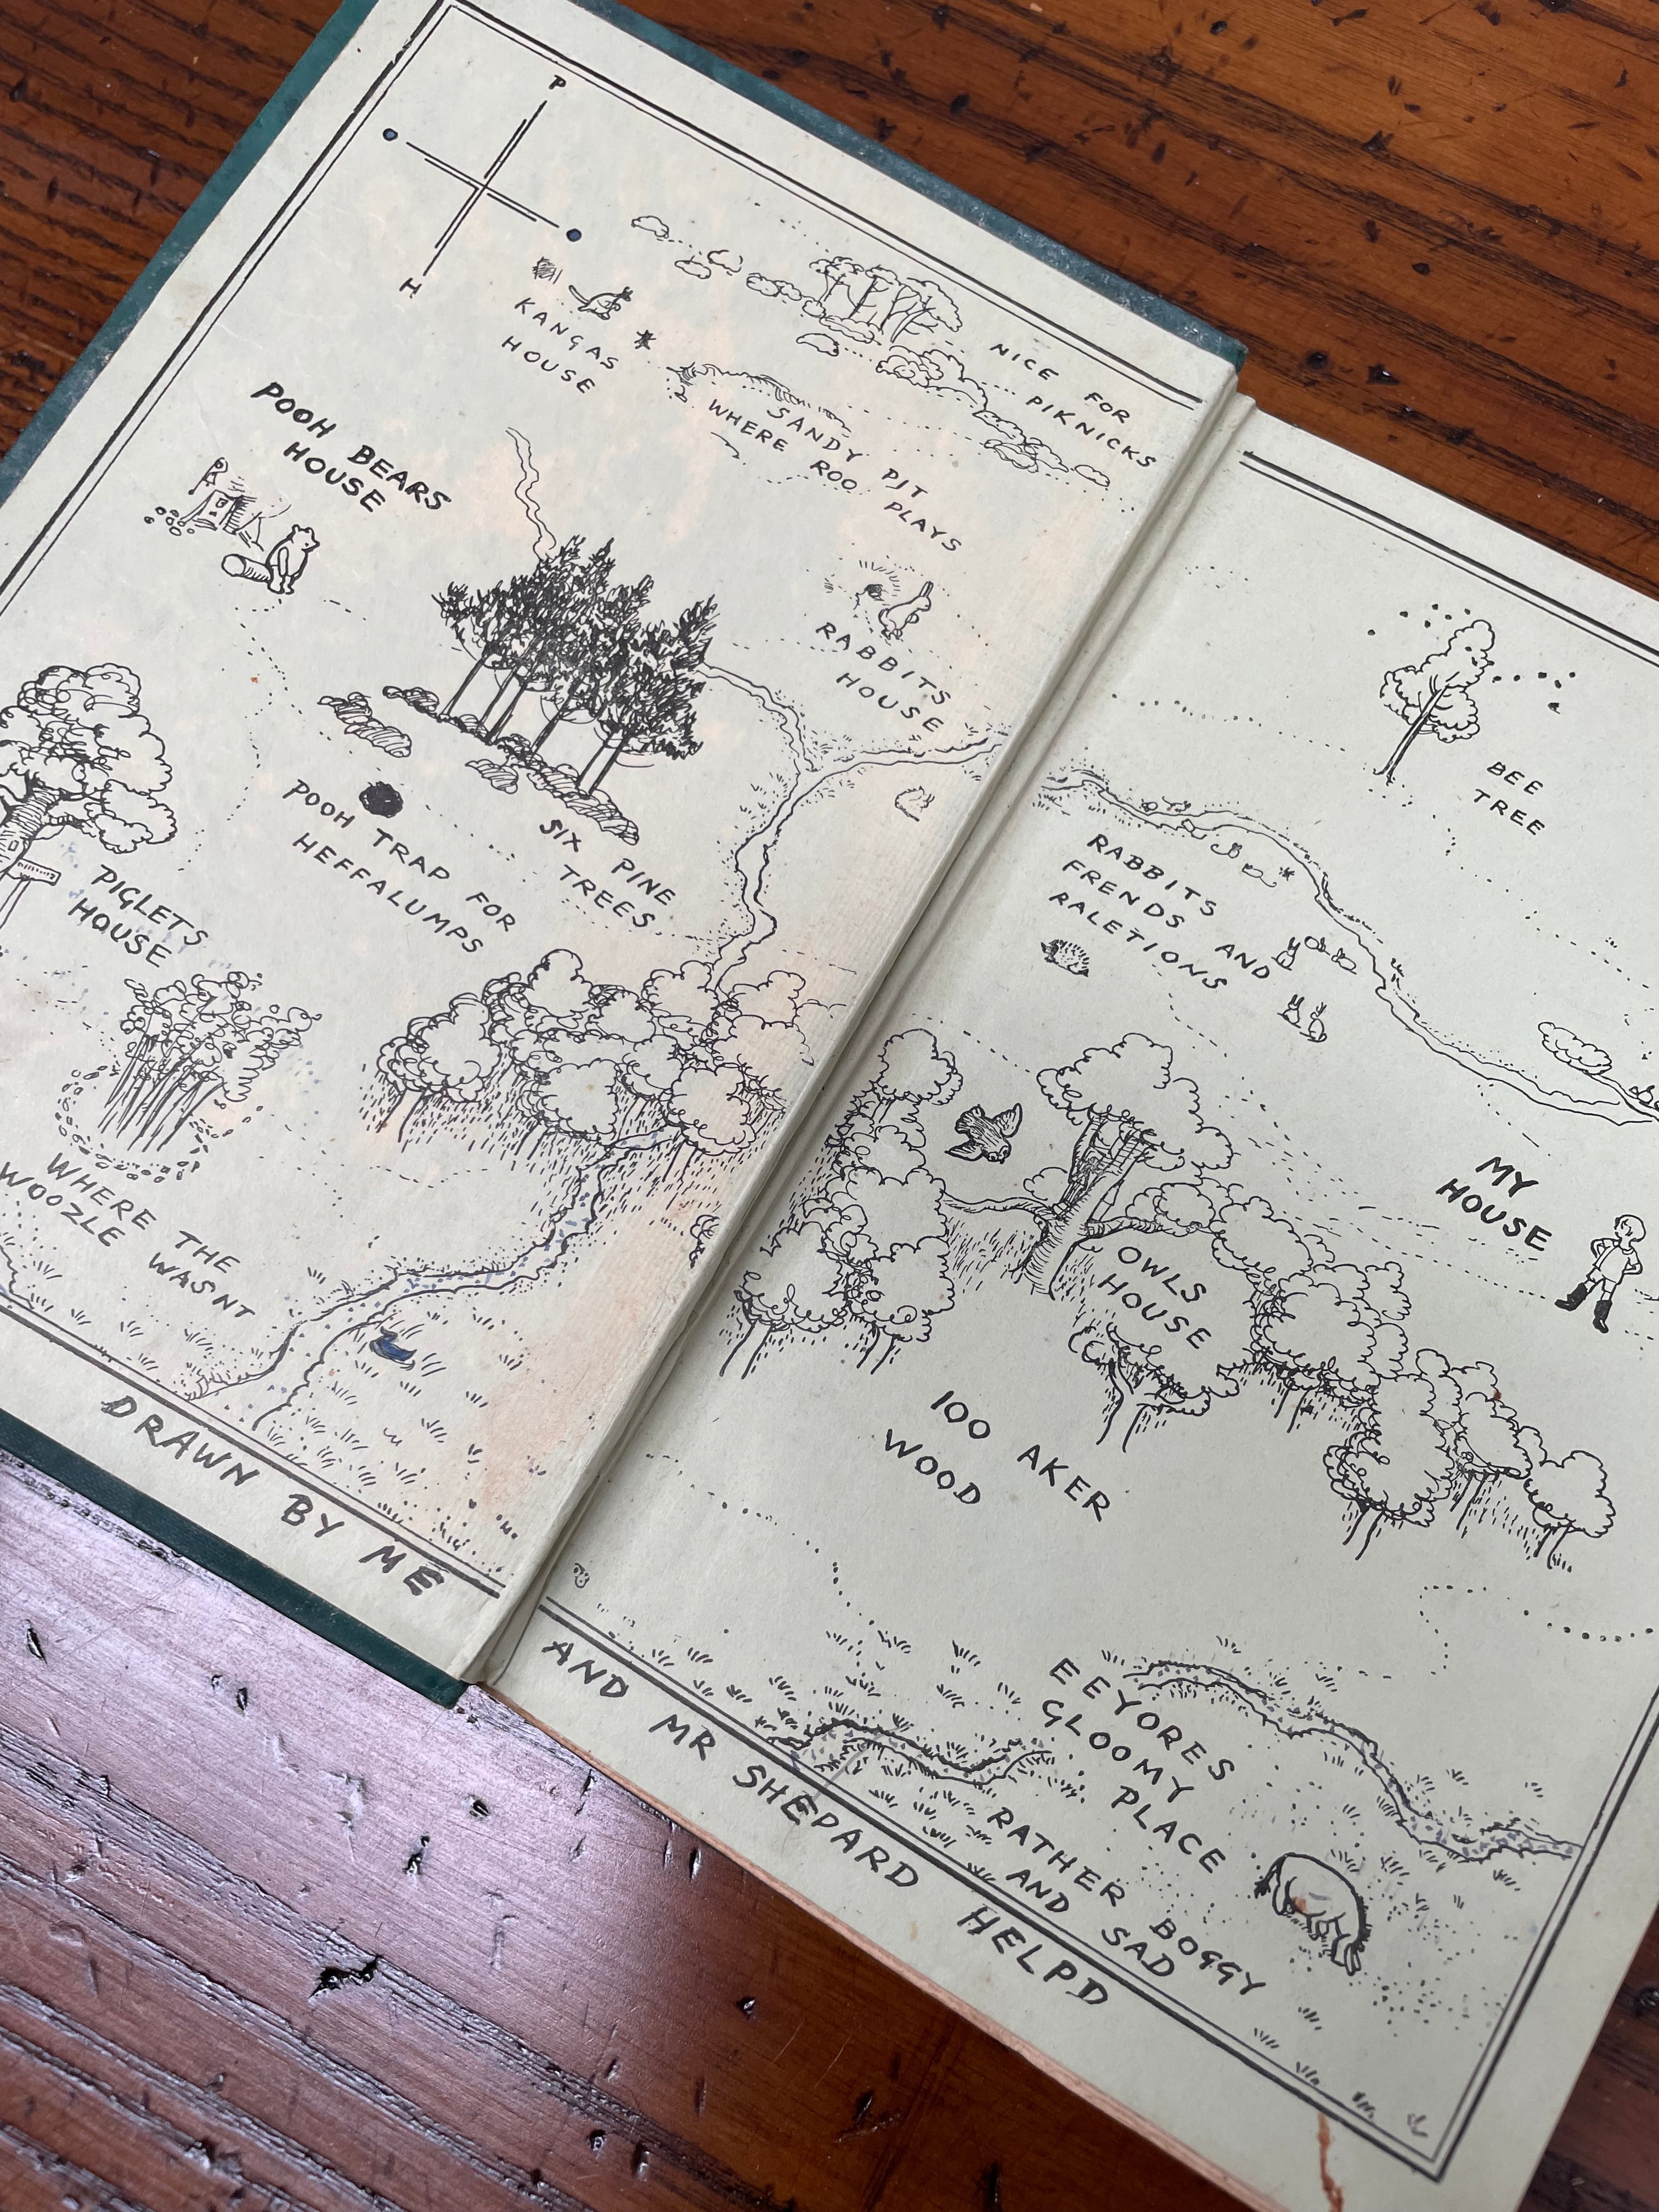 P
O
O
H
KANGAS
HOUSE
NICE FOR
PIKNICKS
SANDY PIT
WHERE ROO PLAYS
POOH BEARS
HOUSE
RABBITS
HOUSE
POOH TRAP FOR
HEFFALUMPS
SIX PINE
TREES
PIGLETS
HOUSE
WHERE THE
WOOZLE WASNT
DRAWN BY ME
BEE
TREE
RABBITS
FRENDS AND
RALETIONS
MY
HOUSE
OWLS
HOUSE
100 AKER
WOOD
EEYORES
GLOOMY PLACE
RATHER BOGGY
AND SAD
AND MR SHEPARD HELPD